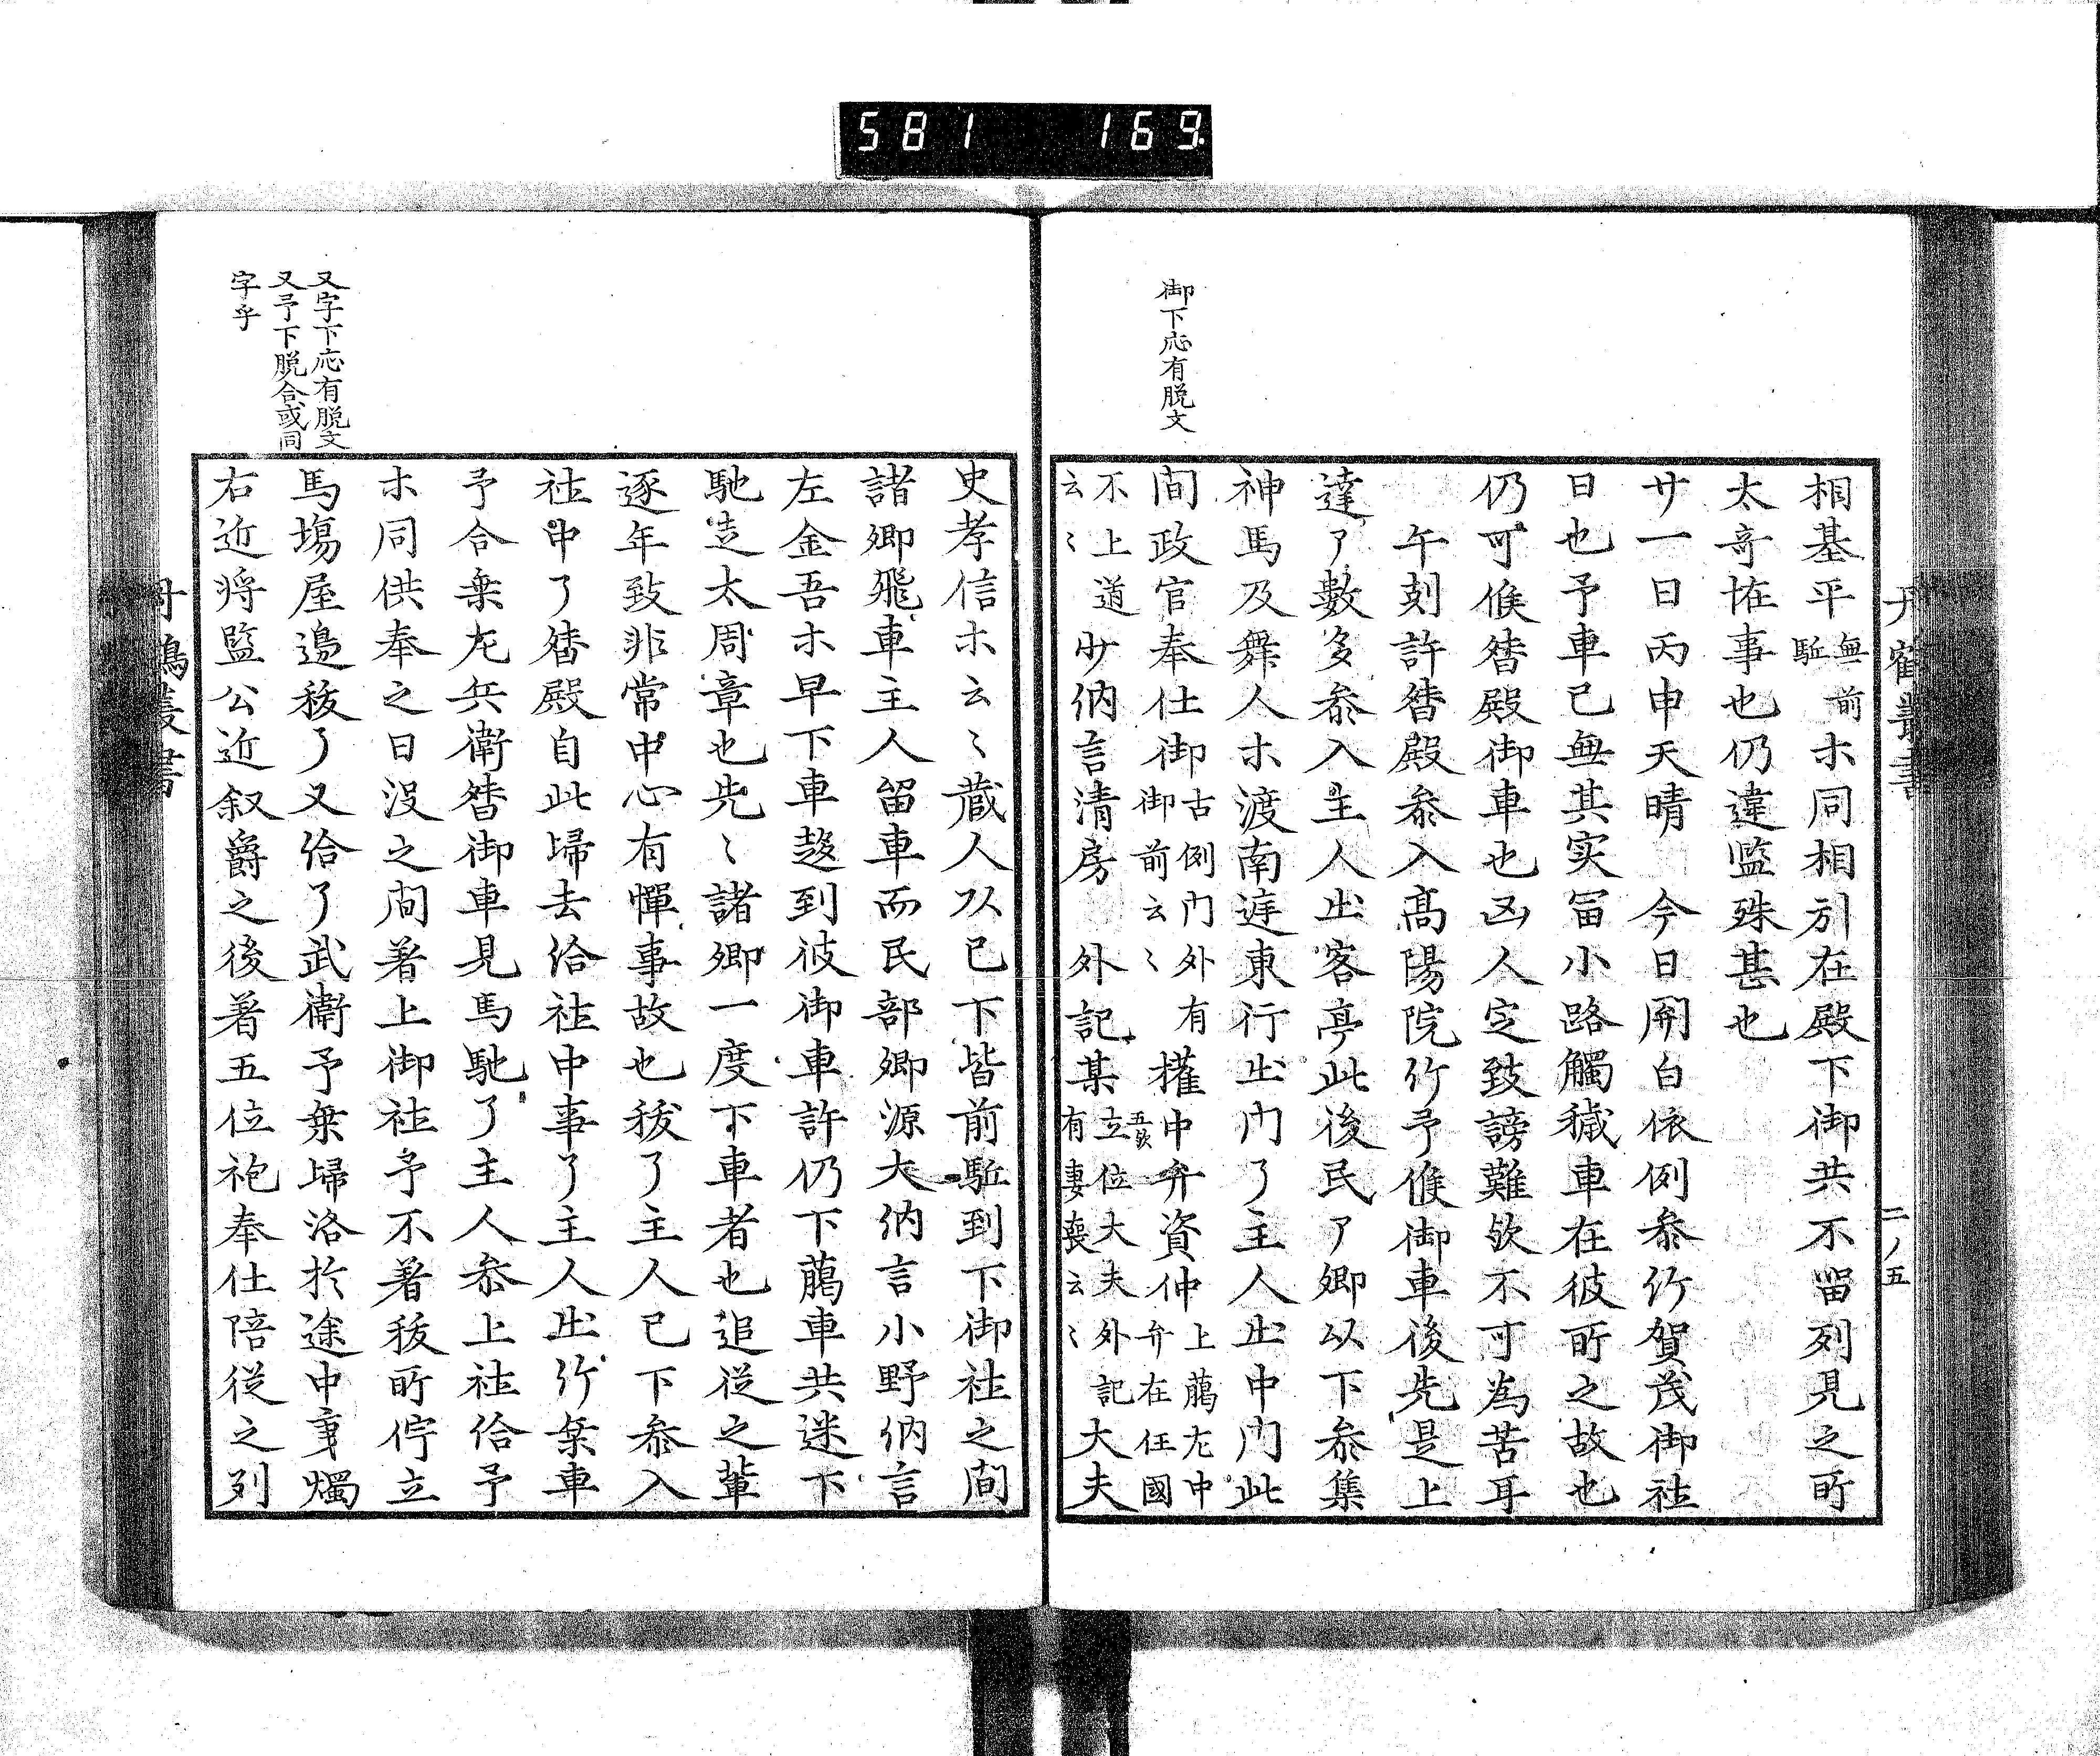 581 169
丹鶴叢書
二ノ五
御下応有脱文
相基平無前駈ホ同相引在殿下御共不留列見之所
太奇恠事也仍違監殊甚也
廿一日丙申天晴 今日関白依例参竹賀茂御社
日也予車已無其実冨小路觸穢車在彼所之故也
仍可候替殿御車也凶人定致謗難欤不可為苦耳
午刻許替殿参入高陽院竹予候御車後先是上
達了數多参入主人出客亭此後民了卿以下参集
神馬及舞人ホ渡南庭東行出门了主人出中门此
间政官奉仕御古例门外有御前云〻権中弁資仲上﨟左中弁在任國
不上道云〻少納言清房 外記某立五欤位大夫外記有妻喪云〻大夫
又字下応有脱文
又予下脱合或同
字乎
史孝信ホ云〻蔵人以已下皆前駈到下御社之间
諸卿飛車主人留車而民部卿源大納言小野納言
左金吾ホ早下車趍到彼御車許仍下﨟車共迷下
馳走太周章也先〻諸卿一度下車者也追従之輩
逐年致非常中心有憚事故也秡了主人已下参入
社中了替殿自此帰去給社中事了主人出竹乗車
予合乗左兵衛替御車見馬馳了主人参上社給予
ホ同供奉之日没之间著上御社予不著秡所佇立
馬塲屋邊秡了又給了武衛予乗帰洛於途中乗燭
右近将監公近叙爵之後著五位袍奉仕陪従之列
丹鶴叢書